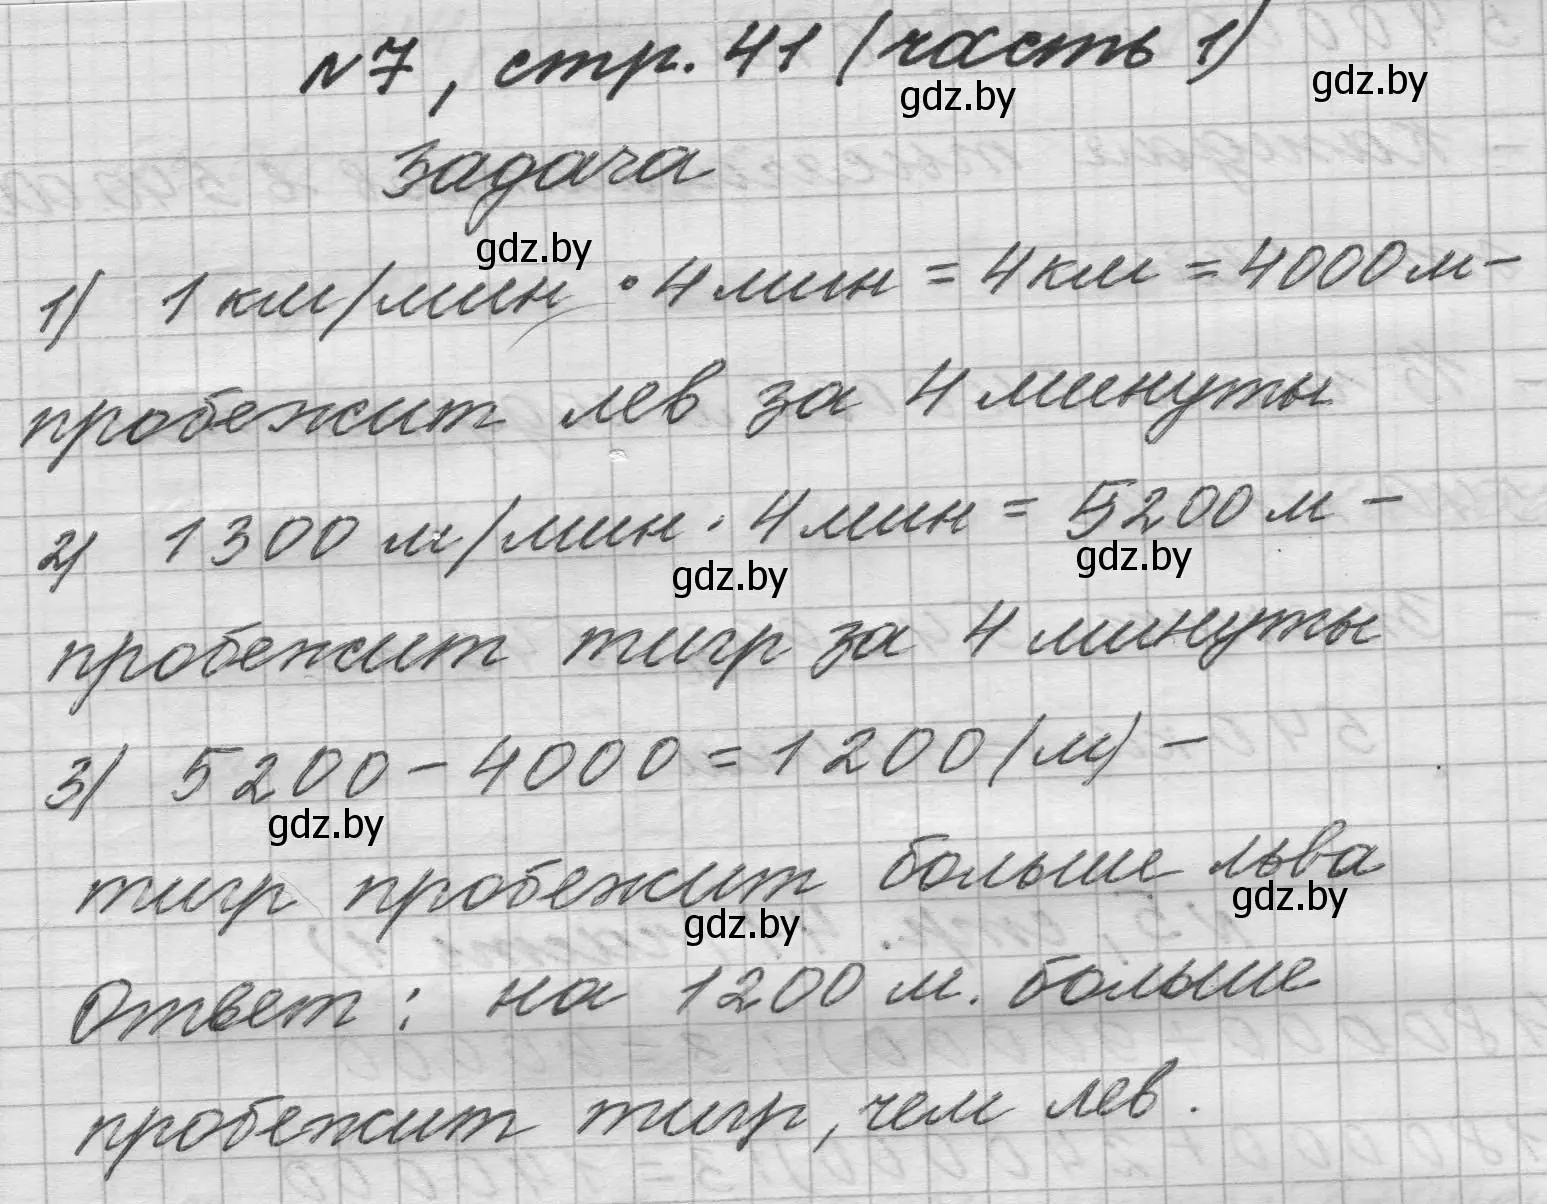 №7, стр. 41 (часть 1)
gdz.by
gdz.by
Задача
gdz.by
1) 1 км/мин · 4 мин = 4 км = 4000 м –
пробежит лев за 4 минуты
2) 1300 м/мин · 4 мин = 5200 м –
gdz.by
gdz.by
пробежит тигр за 4 минуты
3) 5200 – 4000 = 1200 (м) –
gdz.by
тигр пробежит больше льва
gdz.by
gdz.by
Ответ: на 1200 м. больше
пробежит тигр, чем лев.